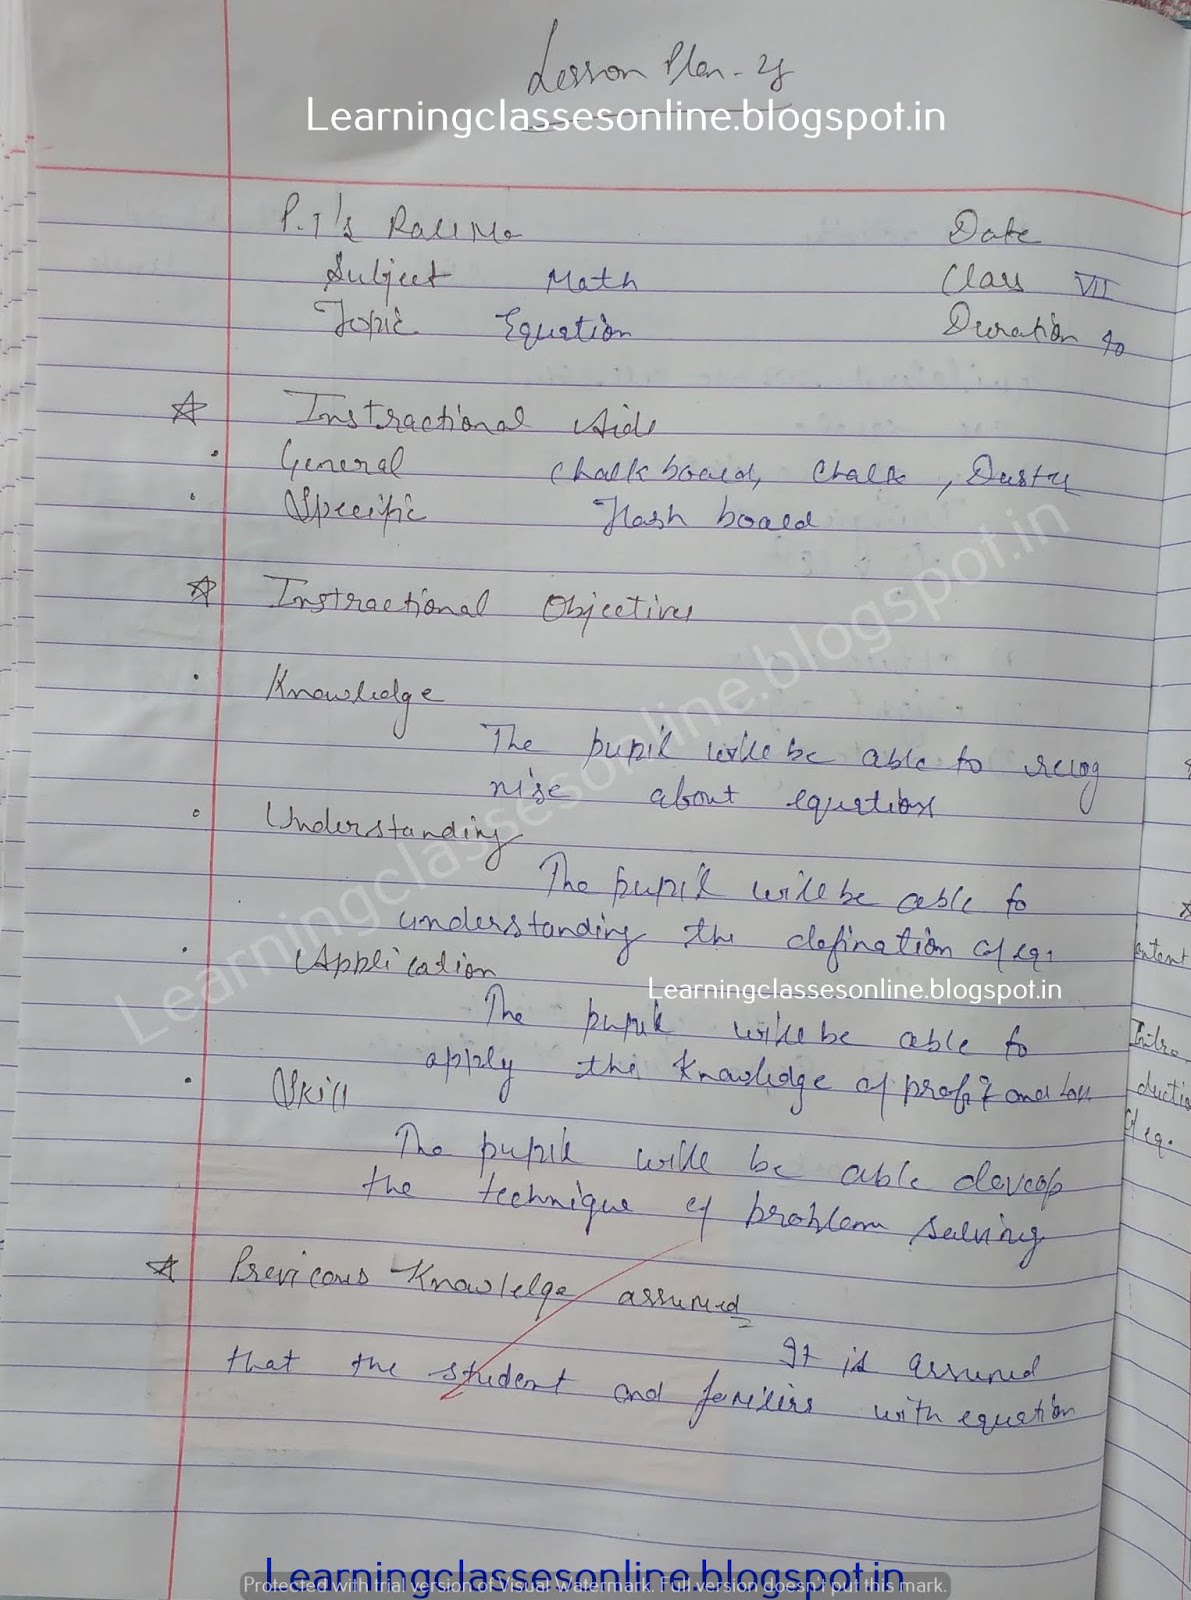 Lesson Plan - 28
Learningclassesonline.blogspot.in
P.T's Roll No Date
Subject Math Class VII
Topic Equation Duration
Instractional Aids
General Chalk board, Chalk, Duster
Specific Flash board
Instractional Objectives
Knowledge
The pupil will be able to recog
nise about equation
Understanding
The pupil will be able to
understanding the defination of eq.
Application
Learningclassesonline.blogspot.in
The pupil will be able to
apply the Knowledge of profit and loss
Skill
The pupil will be able develop
the technique of problem solving
Previous Knowlelge assumed
It is assumed
that the student and with equation
Learningclassesonline.blogspot.in
ontent
Intro
ductio
of eq.
Learningclassesonline.blogspot.in
Protected with trial version of Visual Watermark. Full version doesn't put this mark.